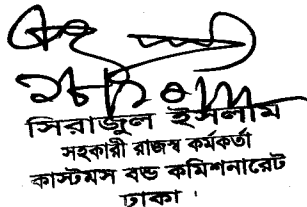 সিরাজুল ইসলাম
সহকারী রাজস্ব কর্মকর্তা
কাস্টমস বন্ড কমিশনারেট
ঢাকা ।